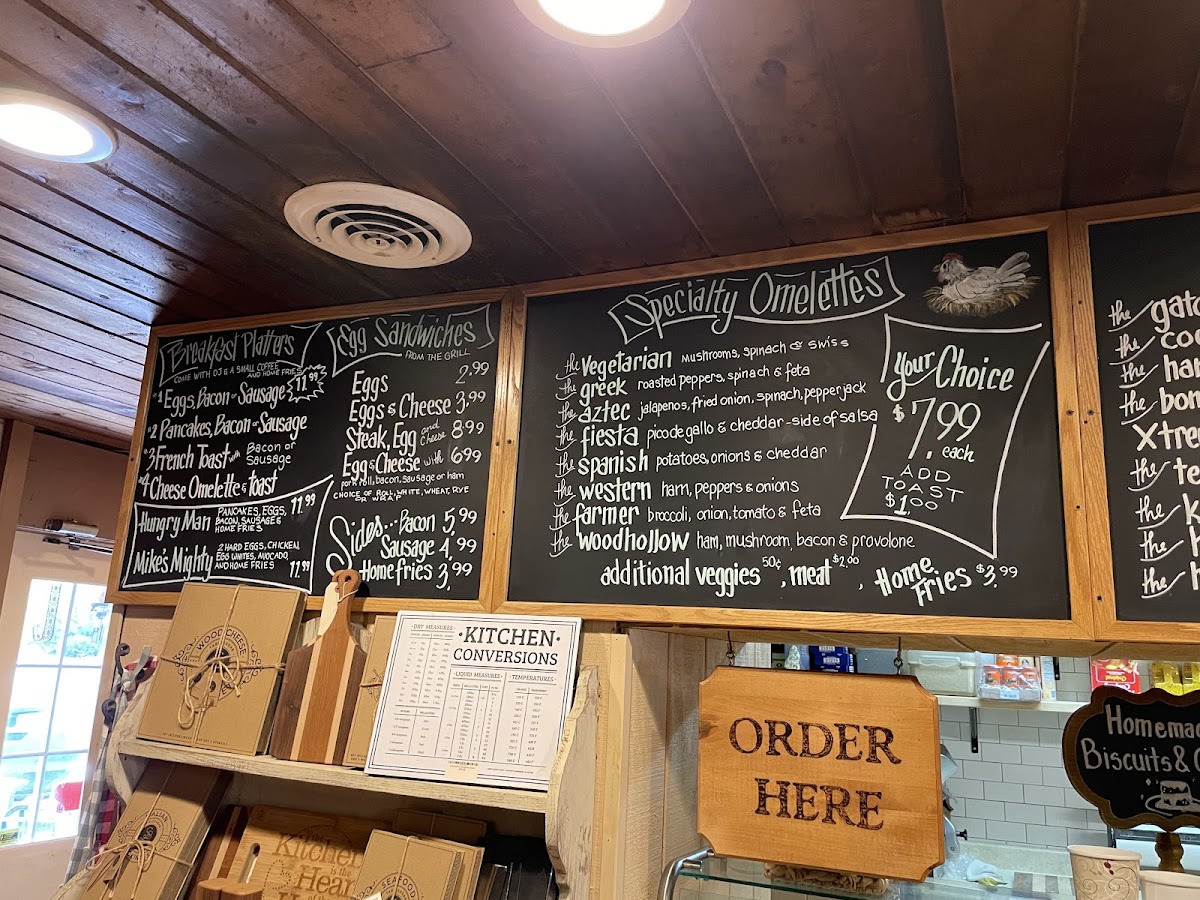 Breakfast Platters
COME WITH OJ & A SMALL COFFEE
AND HOME FRIES
#1 Eggs, Bacon or Sausage 11.99
#2 Pancakes, Bacon or Sausage
#3 French Toast with Bacon or
Sausage
#4 Cheese Omelette & Toast
Hungry Man PANCAKES, EGGS,
BACON, SAUSAGE &
HOME FRIES
11.99
Mike's Mighty 2 HARD EGGS, CHICKEN,
EGG WHITES, AVOCADO,
AND HOME FRIES 11.99
Egg Sandwiches
FROM THE GRILL
Eggs 2.99
Eggs & Cheese 3.99
Steak, Egg and Cheese 8.99
Egg & Cheese with 6.99
pork roll, bacon, sausage or ham
CHOICE OF ROLL, WHITE, WHEAT, RYE
OR WRAP
Sides... Bacon 5.99
Sausage 4.99
Homefries 3.99
Specialty Omelettes
the Vegetarian mushrooms, spinach & swiss
the greek roasted peppers, spinach & feta
the aztec jalapenos, fried onion, spinach, pepperjack
the fiesta pico de gallo & cheddar - side of salsa
the spanish potatoes, onions & cheddar
the western ham, peppers & onions
the farmer broccoli, onion, tomato & feta
the woodhollow ham, mushroom, bacon & provolone
additional veggies 50¢, meat $2.00, Home Fries $3.99
Your Choice
$7.99
each
ADD
TOAST
$1.00
the
the
the
the
Xtre
the
the
the
the
WOOD CHEESE
DRY MEASURES
·KITCHEN·
CONVERSIONS
LIQUID MEASURES
TEMPERATURES
ORDER
HERE
Homemade
Biscuits &
Kitchen
the
Hear
SEAFOOD